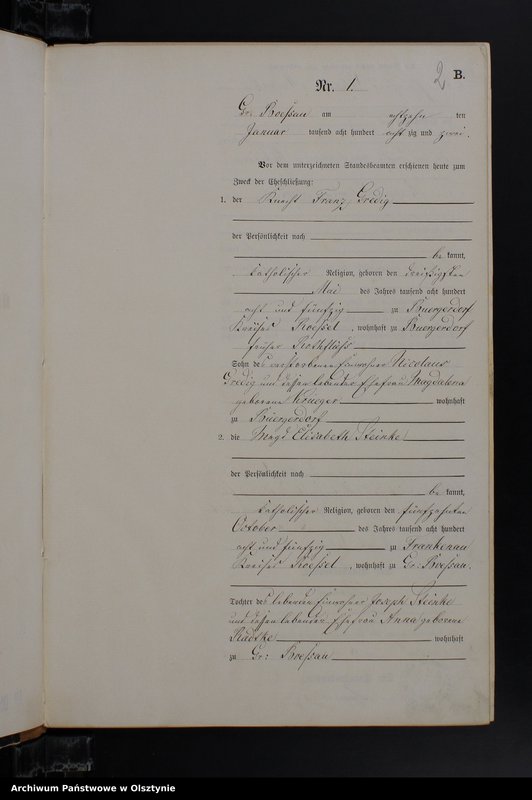 2 B.
Nr. 1.
Gr: Boeßau am achtzehn ten
Januar tausend acht hundert acht zig und zwei.
Vor dem unterzeichneten Standesbeamten erschienen heute zum
Zweck der Eheschließung:
1. der Knecht Franz Gredig
der Persönlichkeit nach
be kannt,
katholischer Religion, geboren den dreißigsten
Mai des Jahres tausend acht hundert
acht und fünfzig zu Buergerdorf
Kreises Roessel, wohnhaft zu Buergerdorf
früher Rothfließ
Sohn des verstorbenen Einwohners Nicolaus
Gredig und dessen lebender Ehefrau Magdalena
geborene Krueger wohnhaft
zu Buergerdorf
2. die Magd Elisabeth Steinke
der Persönlichkeit nach
be kannt,
katholischer Religion, geboren den fünfzehnten
October des Jahres tausend acht hundert
acht und fünfzig zu Frankenau
Kreises Roessel, wohnhaft zu Gr: Boeßau.
Tochter des lebenden Einwohners Joseph Steinke
und dessen lebender Ehefrau Anna geborene
wohnhaft
zu Gr: Boeßau
Archiwum Państwowe w Olsztynie